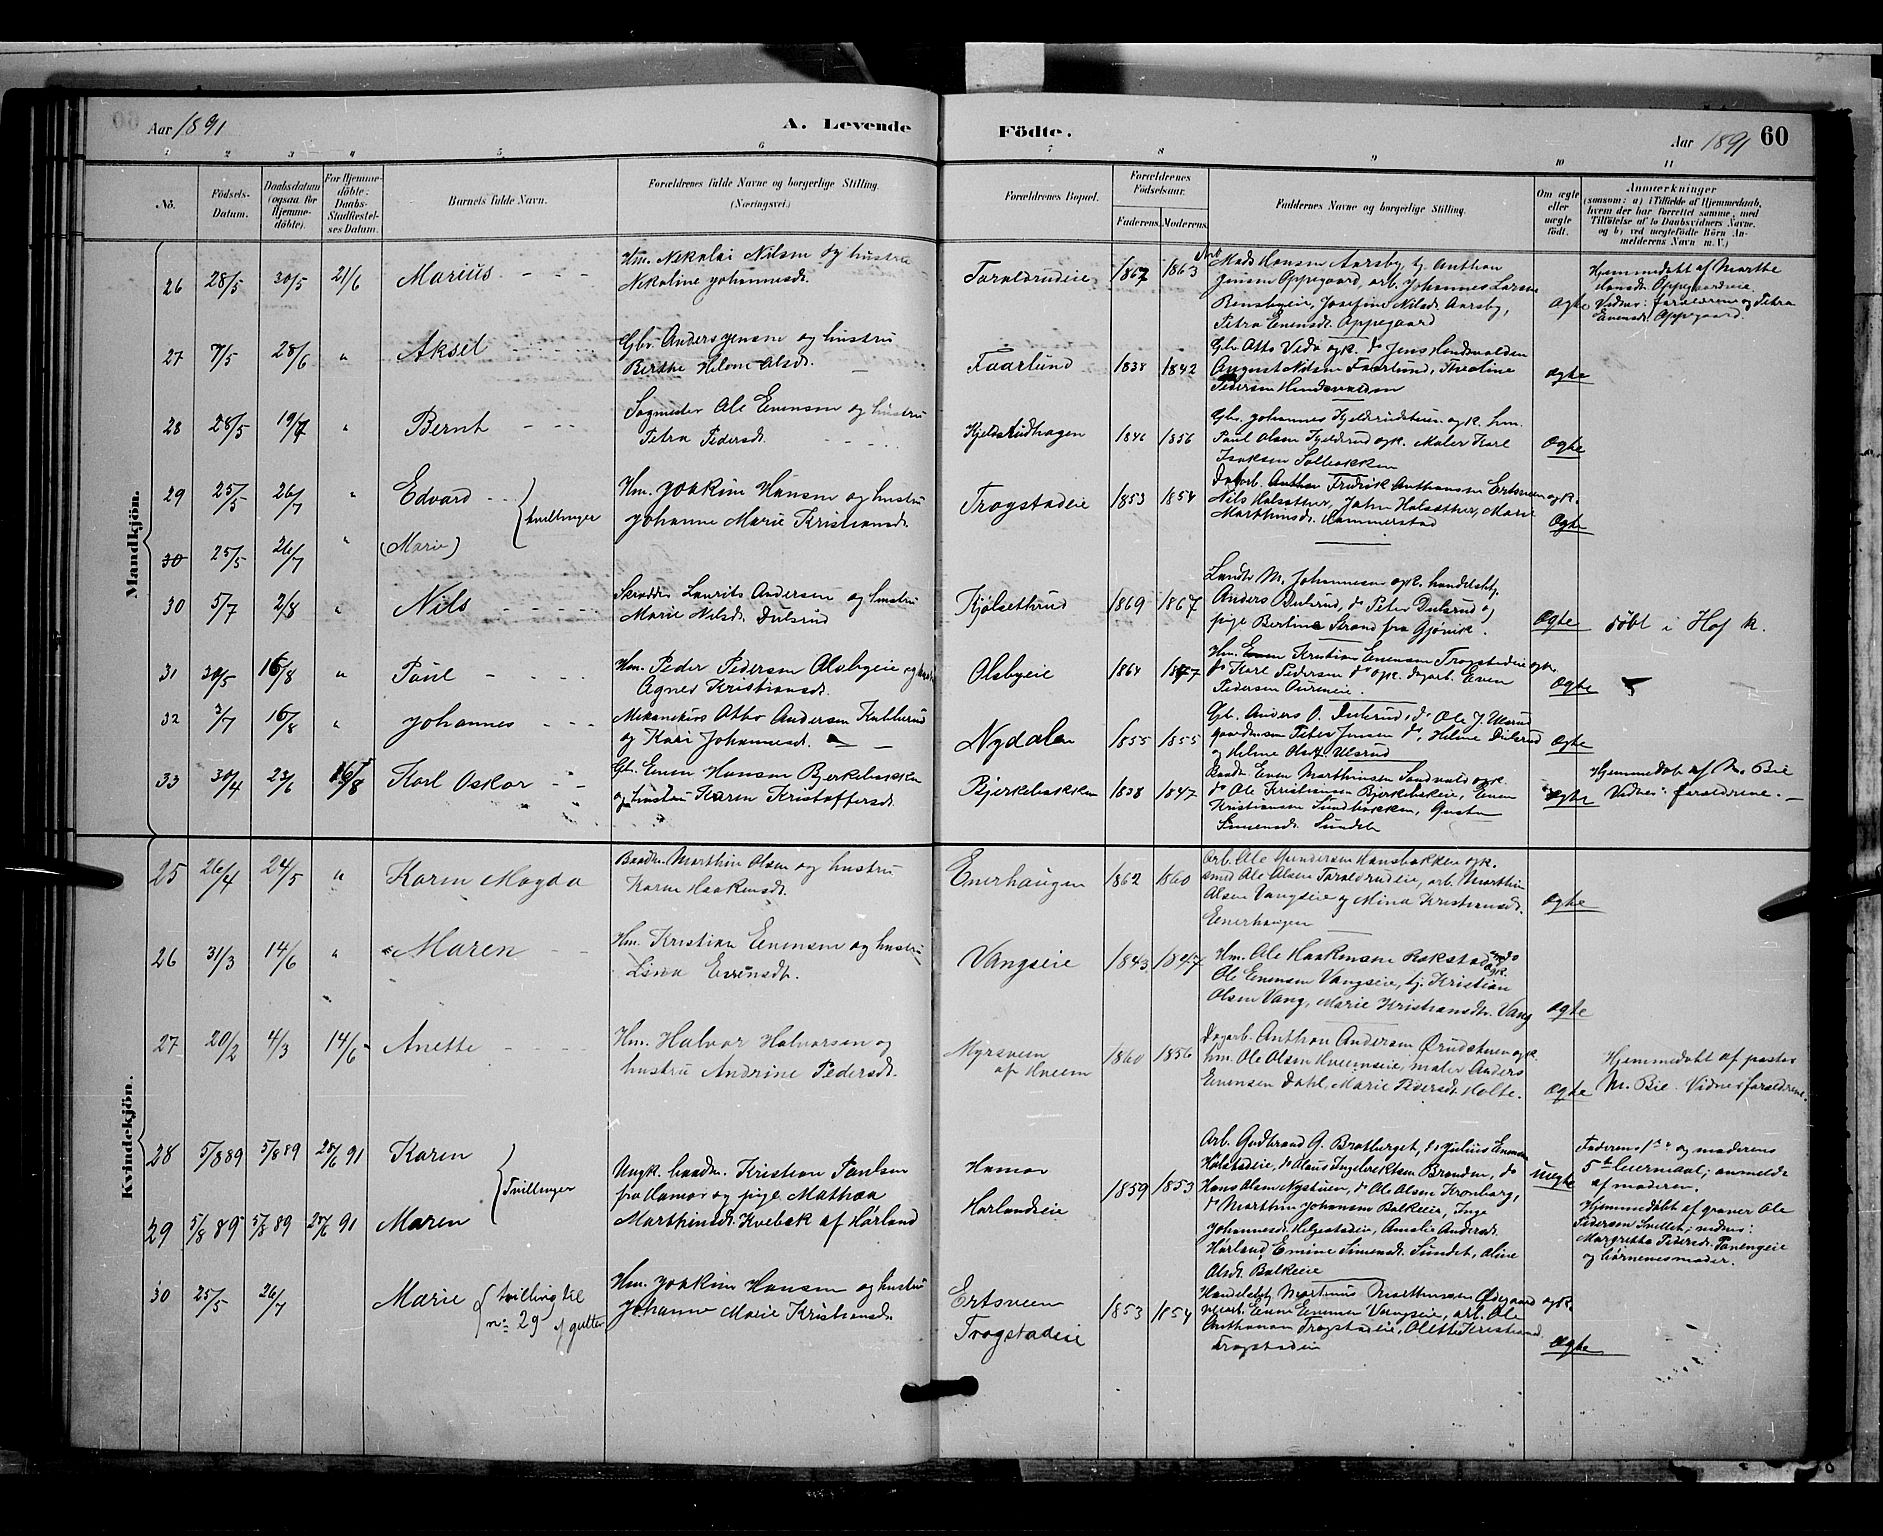 Aar 1891
A. Levende
Födte.
Aar 1891
60
1 2 3 4 5 6 7 8 9 10 11
No.
Födsels-
Datum.
Daabsdatum
(ogsaa for
Hjemme-
döbte).
For Hjemme-
döbte:
Daabs-
Stadfæstel-
ses Datum.
Barnets fulde Navn.
Forældrenes fulde Navne og borgerlige Stilling.
(Næringsvei.)
Forældrenes Bopæl.
Forældrenes
Födselsaar.
Faderens. Moderens.
Faddernes Navne og borgerlige Stilling.
Om ægte
eller
uægte
født.
Anmærkninger
(saasom: a) i Tilfælde af Hjemmedaab,
hvem der har forrettet samme, med
Tilføielse af to Daabsvidners Navne.
og b) ved uægtefödte Börn An-
melderens Navn m. V.)
Mandkjön.
26 28/5 30/5 21/6 Marius
Hm. Nikolai Nilsen og hustru
Nikoline Johannesdt.
Taraldrudeie 1867 1863
Mads Hansen Aarsby, tj. Anthon
Jensen Oppegaard, arb. Johannes Larsen
Bensbyeie, Josefine Nilsdt. Aarsby,
Petra Evensdt. Oppegaard
ægte
Hjemmedøbt af Marthe
Hansdt. Oppegaardeie.
Vidner: forældrene og Petra
Evensdt. Oppegaard.
27 7/5 28/6 " Aksel
Gbr. Anders Jensen og hustru
Berthe Helene Olsdt.
Faarlund 1838 1842
Gbr. Otto Vedø ogk. do Jens Hindsvolden
August Nilsen Faarlund, Theoline
Pedersen Hindsvolden
ægte
28 28/5 19/7 " Bernt
Sagmester Ole Evensen og hustru
Petra Pedersdt.
Kjeldsrudhagen 1846 1856
Gbr. Johannes Kjeldsrudstuen ogk. hm.
Paul Olsen Kjeldsrud ogk. Maler Karl
Isaksen Solbakken
ægte
29 25/5 26/7 " Edvard
tvillinger
Hm. Joakim Hansen og hustru
Johanne Marie Kristiansdt.
Trogstadeie 1853 1854
Dagarb. Anthon Fredrik Anthonsen Ertsveen ogk.
Nils Holsæther, John Holsæther, Marie
Marthinsdt. Hammerstad
ægte
30 25/5 26/7 " (Marie)
30 5/7 2/8 " Nils
Skrædder Laurits Andersen og hustru
Marie Nilsdt. Dulsrud
Kjølsethrud 1869 1867
Landh. M. Johannesen ogk. handelsbtj.
Anders Dulsrud, do Peter Dulsrud og
pige Bertine Strand fra Gjøvik.
ægte
døbt i Hof k.
31 30/5 16/8 " Paul
Hm. Peder Pedersen Olsbyeie og hustru
Agnes Kristiansdt.
Olsbyeie 1864 1877
Hm. Kristian Evensen Trogstadeie ogk.
do Karl Pedersen do ogk. dagarb. Even
Pedersen Aureneie.
ægte
32 3/7 16/8 " Johannes
Mekanikus Otto Andersen Kullerud
og Kari Johannesdt.
Nydalen 1855 1855
Gb. Anders O. Dulsrud, do Ole J. Ulsrud
gaardman Peter Jensen do, Helene Dulsrud
og Helene Olsdt. Ulsrud
ægte
33 30/4 23/6 16/8 Karl Oskar
Gb. Even Hansen Bjerkebakken
og hustru Karen Kristoffersdt.
Bjerkebakken 1838 1847
Baadm. Even Marthinsen Sandvold ogk.
do Ole Kristiansen Bjerkebækeie, Even
Kristiansen Sundbakken, Gusta
Simensdt. Sundet
ægte
Hjemmedøb af M. Bie
Vidner: forældrene.
Kvindekjön.
25 26/4 24/5 " Karen Magda
Baadm. Marthin Olsen og hustru
Karen Haakensdt.
Enerhaugen 1862 1860
Arb. Ole Gundersen Hansbakken ogk.
smed Ole Olsen Taraldrudeie, arb. Marthin
Olsen Vangseie og Mina Kristiansdt.
Enerhaugen
ægte
26 31/3 14/6 " Maren
Hm. Kristian Evensen og hustru
Lina Evensdt.
Vangseie 1843 1847
Hm. Ole Haakensen Rokstad ogk.
Ole Evensen Vangseie, tj. Kristian
Olsen Vang, Marie Kristiansdt. Vang
ægte
27 20/2 4/3 14/6 Anette
Hm. Halvor Halvorsen og
hustru Andrine Pedersdt.
Myrsveen
af Kneem 1860 1856
Dagarb. Anthon Andersen Ørudstuen ogk.
hm. Ole Olsen Kneemseie, maler Anders
Evensen Dahl, Marie Pedersdt. Holte.
ægte
Hjemmedøbt af pastor
M. Bie. Vidner forældrene.
28 5/8 89 5/8 89 28/6 91 Karen
Tvillinger
29 5/8 89 5/8 89 28/6 91 Maren
Ungk. baadm. Kristian Paulsen
fra Hamar og pige Mathea
Marthinsdt. Kvebæk af Hørland
Hamar
Hørlandseie 1859 1853
Arb. Gudbrand G. Bratberget, do Julius Evensen
Holstadeie, do Claus Ingebrektsen Brenden, do
Hans Olsen Nystuen, do Ole Olsen Kronborg,
do Marthin Johansen Balkeeie, Inge
Johannesdt. Helgestadeie, Amalie Andersdt.
Hørland, Emine Simensdt. Sundet, Oline
Olsdt. Balkeeie
uægte
Faderens 1ste og moderens
5te leiermaal; anmeldt
af moderen.
Hjemmedøbt af graver Ole
Pedersen Snillet; vidner:
Margrethe Pedersdt. Panengeie
og børnenes moder.
30 25/5 26/7 Marie
tvilling til
no 29 af gutter
Hm. Joakim Hansen og hustru
Johanne Marie Kristiansdt.
Ertsveen
Trogstadeie 1853 1854
Handelsbtj. Martinus Mathiasen Ødegaard ogk.
veiarb. Even Evensen Vangseie, arb. Ole
Anthonsen Trogstadeie, Olette Kristiansd.
Trogstadeie
ægte